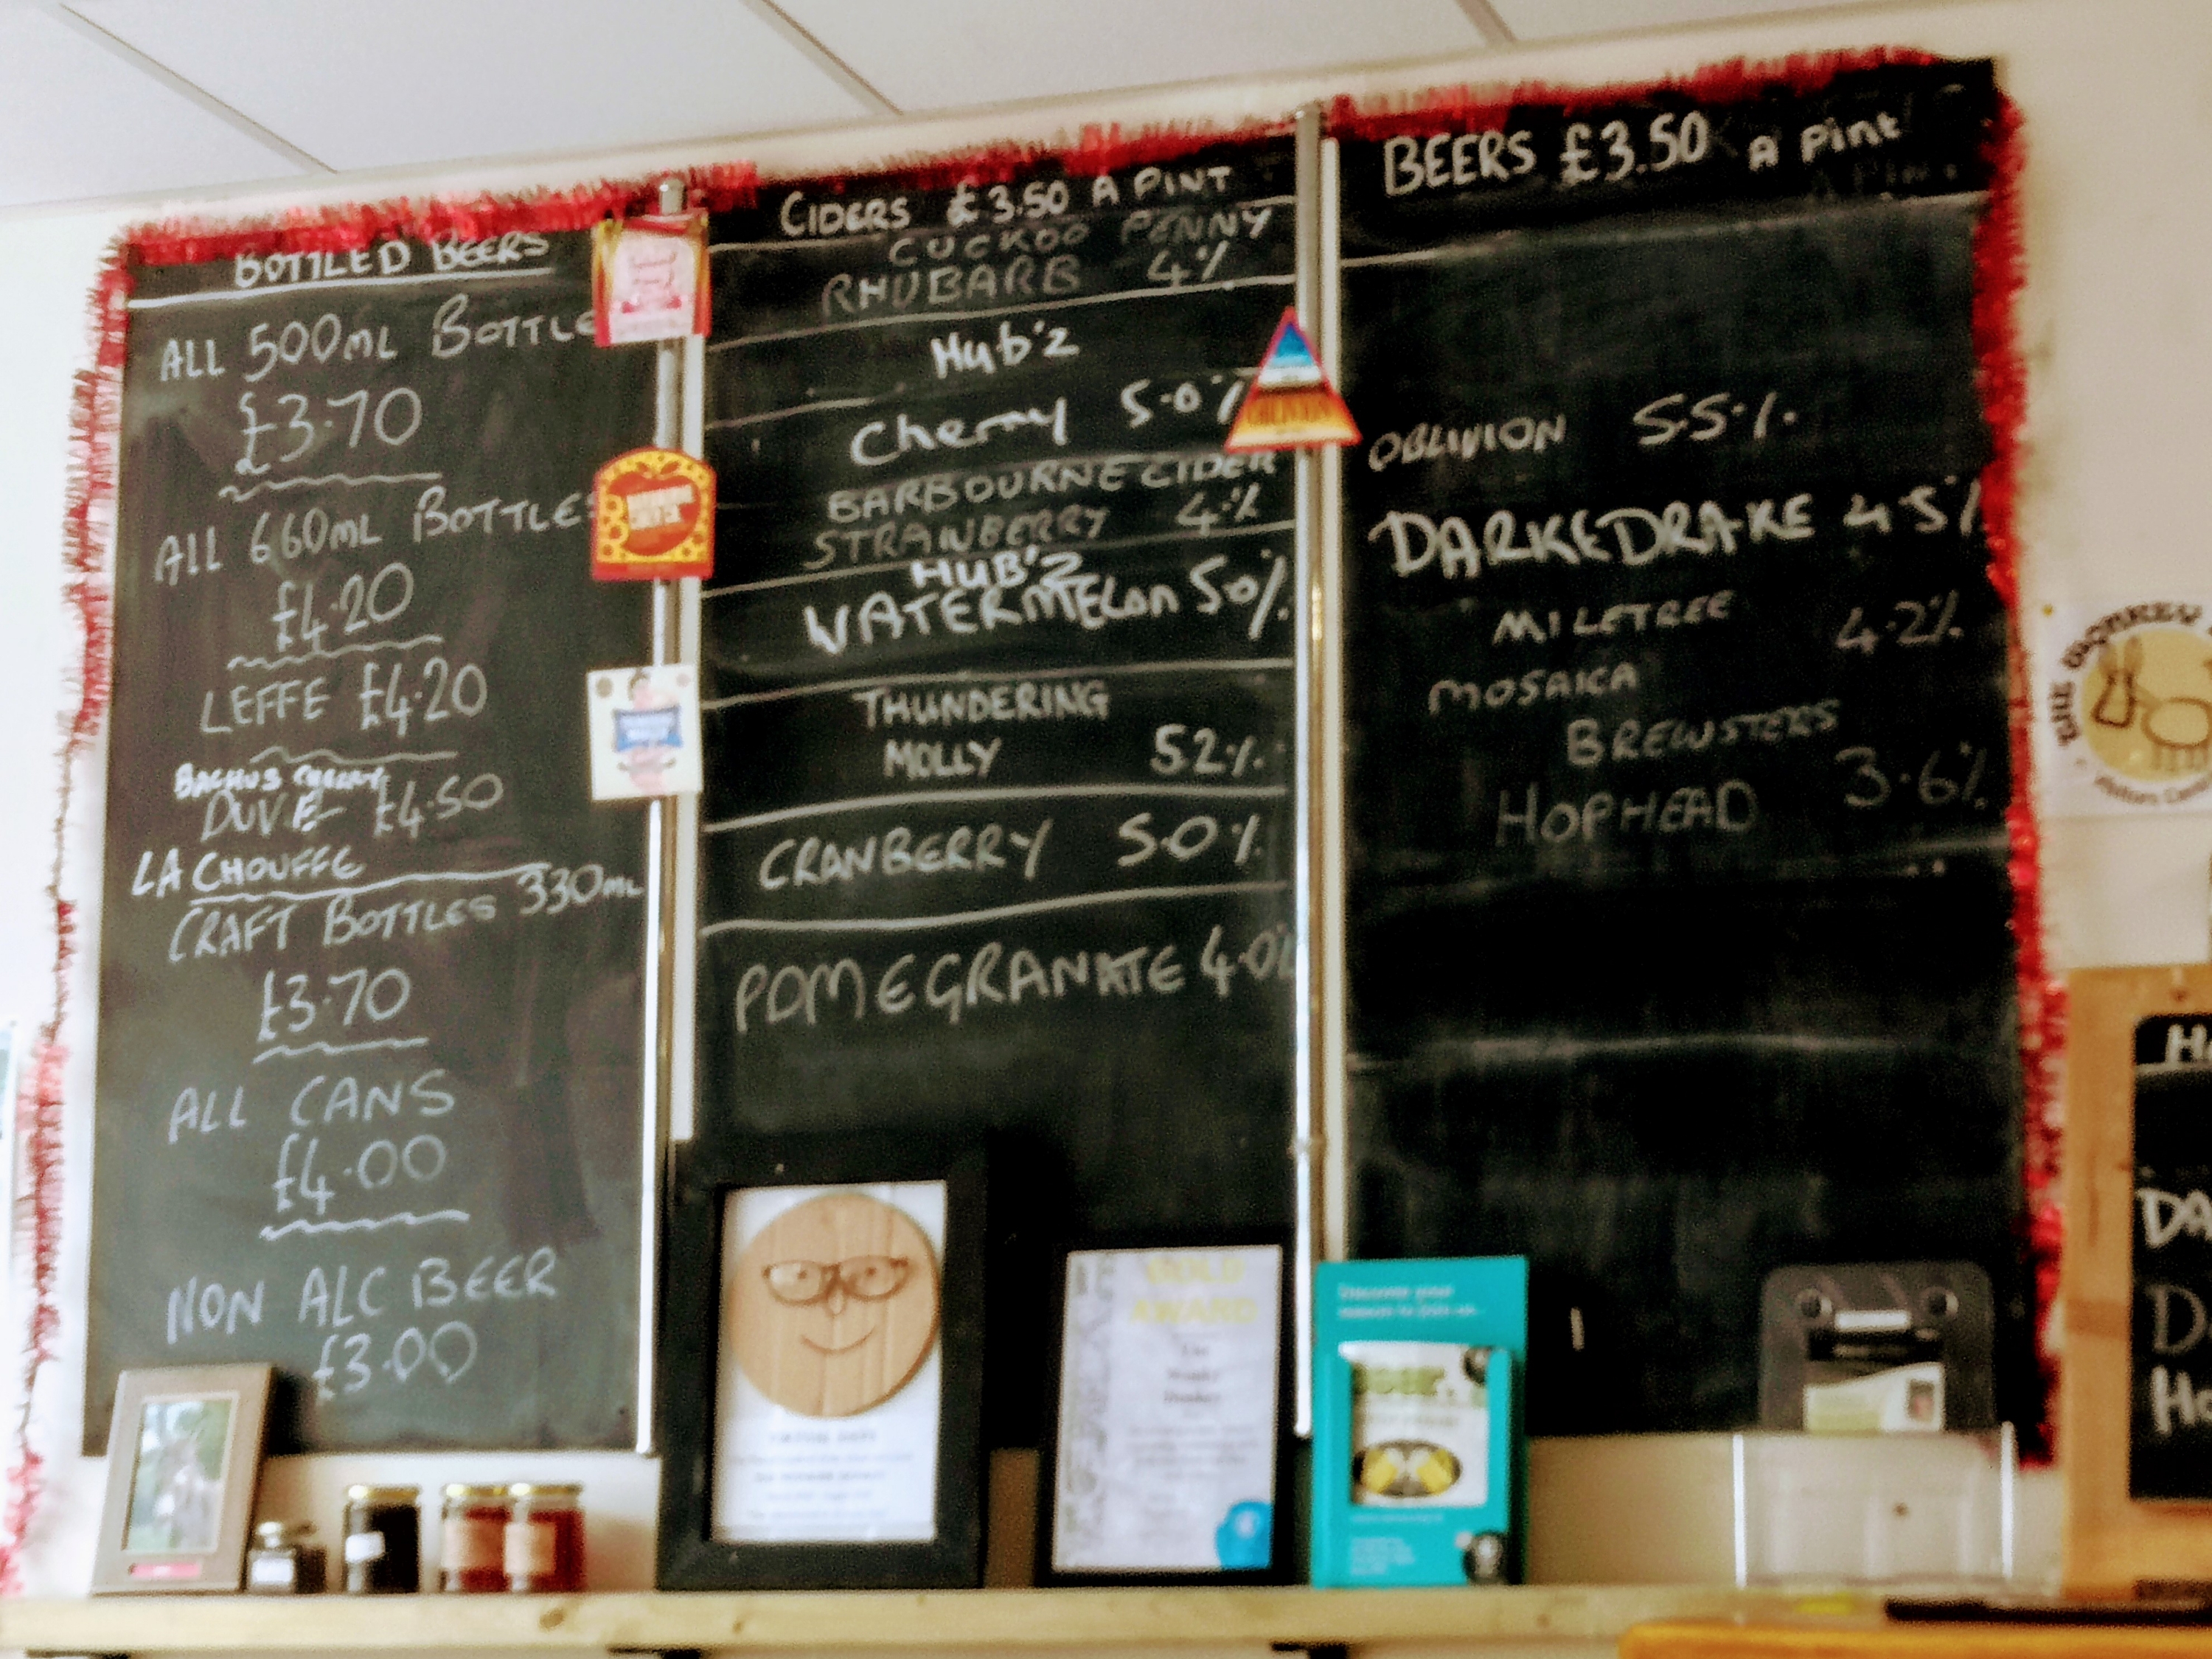 BOTTLED BEERS
ALL 500ML BOTTLE
£3.70
ALL 660ML BOTTLES
£4.20
LEFFE £4.20
BACHUS CHERRY
DUVEL £4.50
LA CHOUFFE
CRAFT BOTTLES 330ML
£3.70
ALL CANS
£4.00
NON ALC BEER
£3.00
CIDERS £3.50 A PINT
CUCKOO PENNY
RHUBARB 4%
Hub'z
Cherry 5.0%
BARBOURNE CIDER
STRAWBERRY 4%
HUB'Z
WATERMELON 50%
THUNDERING
MOLLY 52%
CRANBERRY 5.0%
POMEGRANATE 4.0%
BEERS £3.50 A Pint
OBLIVION 5.5%
DARKEDRAKE 4.5%
MILETREE
4.2%
MOSAICA
BREWSTERS
HOPHEAD 3.6%
GOLD
AWARD
The
Wonky
Donkey
Discover your
reason to join us...
THE
DA
Ho